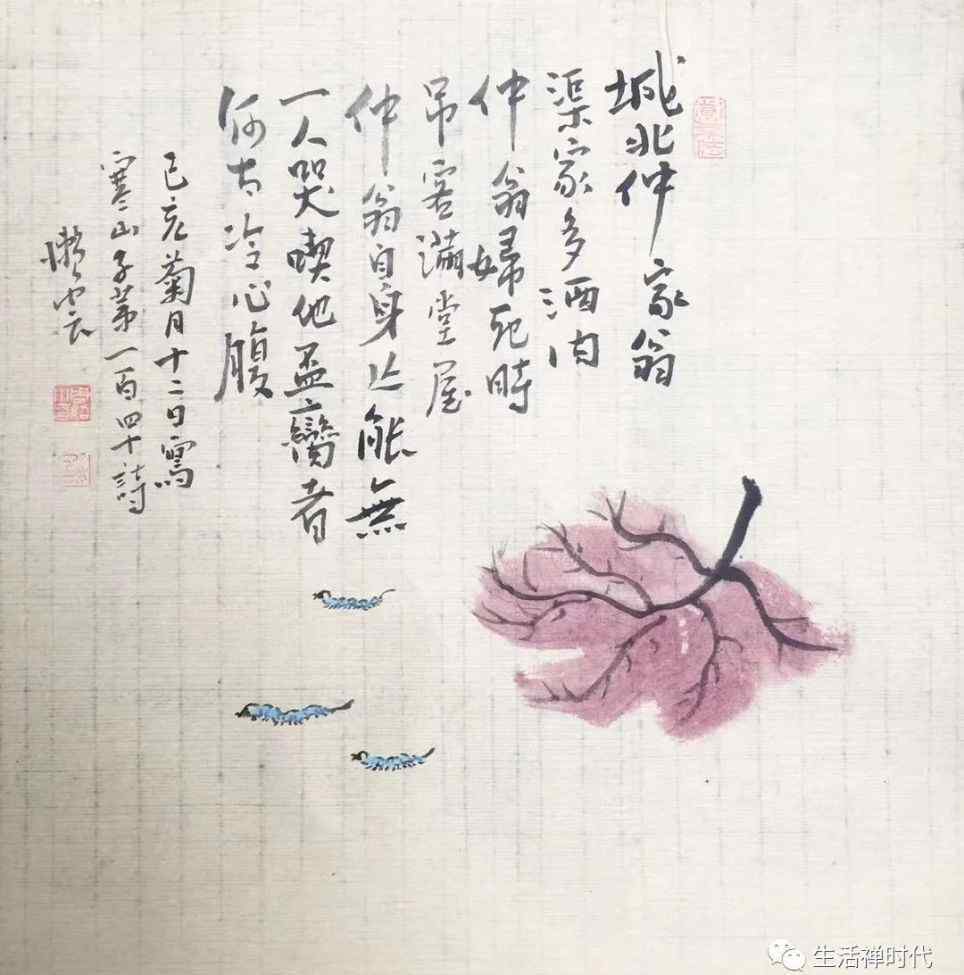 城北仲家翁
渠家多酒肉
仲翁婦死時
吊客滿堂屋
仲翁自身亡能無
一人哭喫他盃臠者
何太冷心腹
己亥菊月十二日寫
寒山子第一百四十詩
懶雲
生活禅时代